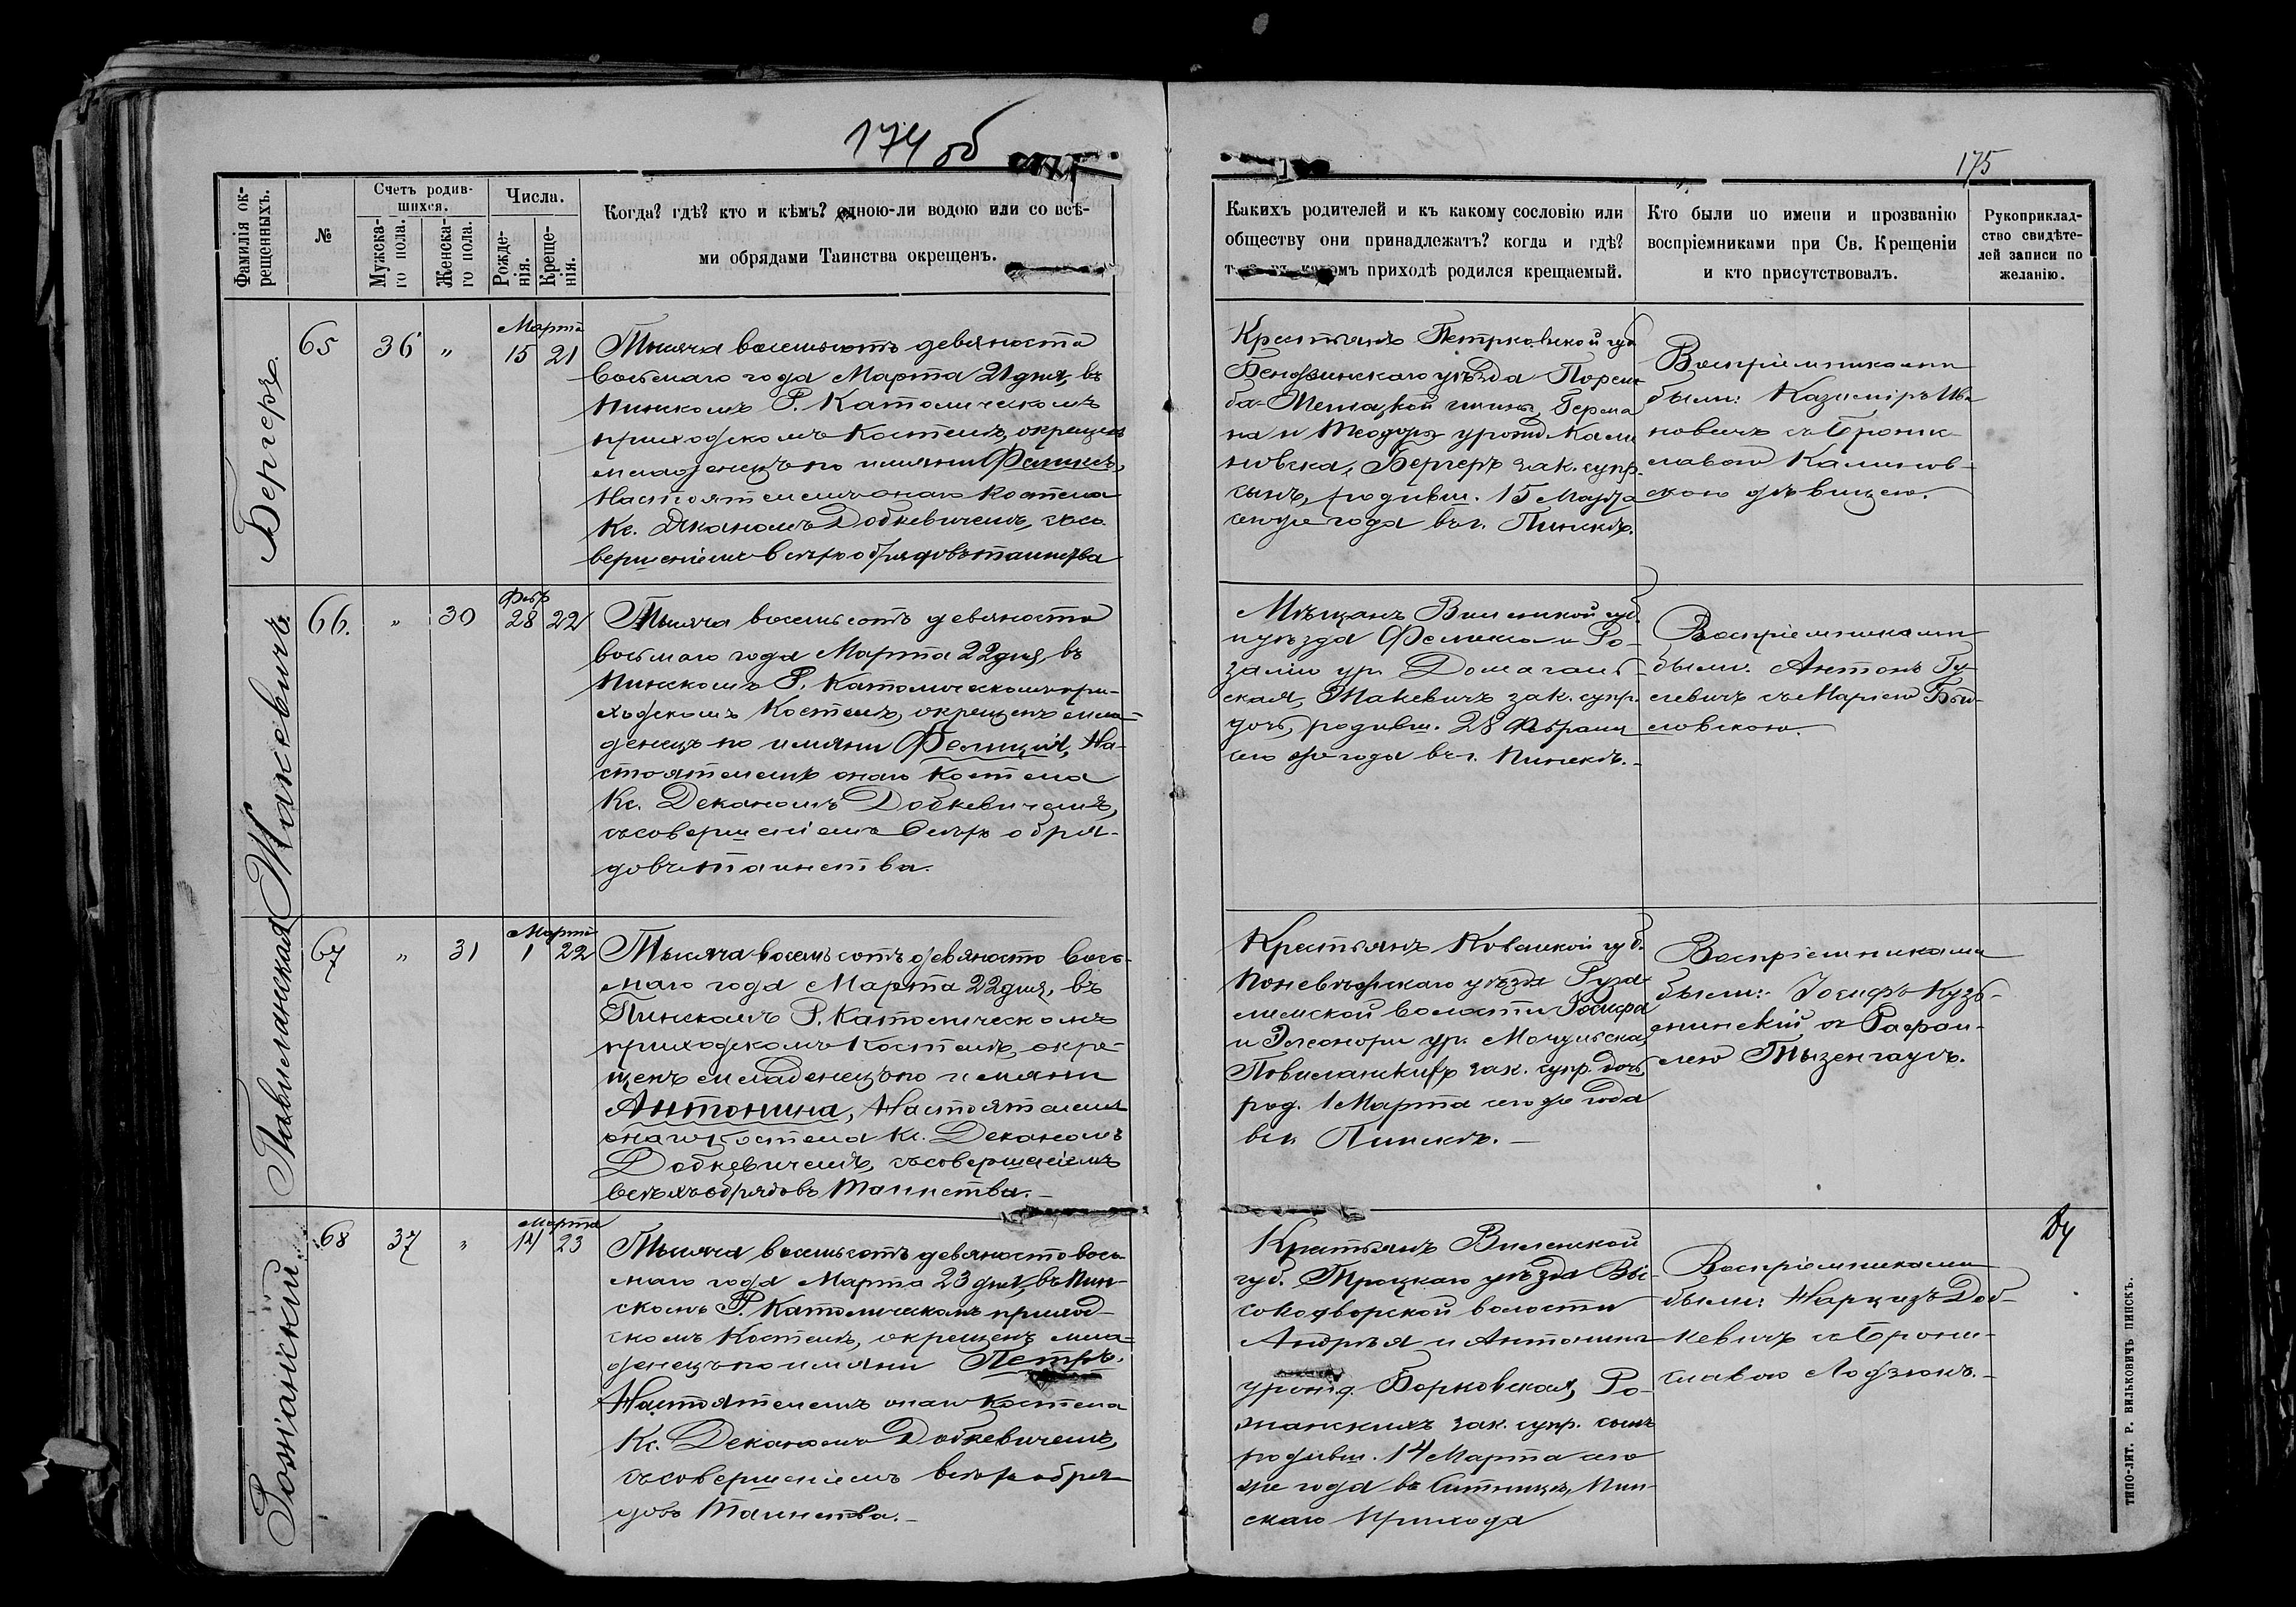 174 об
175
Фамилія ок-
рещенныхъ.
№
Счетъ родив-
шихся.
Мужска-
го пола.
Женска-
го пола.
Числа.
Рожде-
нія.
Креще-
нія.
Когда? гдѣ? кто и кѣмъ? одною-ли водою или со всѣ-
ми обрядами Таинства окрещенъ.
Какихъ родителей и къ какому сословію или
обществу они принадлежатъ? когда и гдѣ?
приходѣ родился крещаемый.
Кто были по имени и прозванію
воспріемниками при Св. Крещеніи
и кто присутствовалъ.
Рукоприклад-
ство свидѣте-
лей записи по
желанію.
Бергеръ.
65
36
"
Марта
15 21
Тысяча восемьсотъ девяносто
восьмаго года Марта 21 дня, въ
Пинскомъ Р. Католическомъ
приходскомъ Костелѣ, окрещенъ
младенецъ по имяни Феликсъ,
Настоятелемъ онаго Костела
Кс. Деканомъ Добкевичемъ, съ со-
вершеніемъ всѣхъ обрядовъ таинства
Крестьянъ Петрковской губ
Бендзинскаго уѣзда
гмины, Герма
на и Теодоры урожд. Кали
новска, Бергеръ зак. супр.
сынъ, родивш. 15 Марта
сего же года въ г. Пинскѣ.
Воспріемниками
были: Казиміръ Ива
новичъ съ Брони-
славою Калинов-
скою дѣвицею.
Жакевичъ.
66.
"
30
Февр
28 22
Тысяча восемьсотъ девяносто
восьмаго года Марта 22 дня, въ
Пинскомъ Р. Католическомъ при-
ходскомъ Костелѣ, окрещенъ мла-
денецъ по имяни Фелиція, На-
стоятелемъ онаго Костела
Кс. Деканомъ Добкевичемъ,
съ совершеніемъ всѣхъ обря-
довъ таинства.
Мѣщанъ Виленской губ.
и уѣзда Феликса и Ро-
заліи ур.
ская, Жакевичъ зак. супр.
дочь, родивш. 28 Февраля
сего же года въ г. Пинскѣ.
Воспріемниками
были: Антонъ Гу-
левичъ съ Маріею
ловскою.
Павиланская
67
"
31
Марта
1 22
Тысяча восемьсотъ девяносто вось-
маго года Марта 22 дня, въ
Пинскомъ Р. Католическомъ
приходскомъ Костелѣ, окре-
щенъ младенецъ по имяни
Антонина, Настоятелемъ
онаго Костела Кс. Деканомъ
Добкевичемъ, съ совершеніемъ
всѣхъ обрядовъ Таинства.
Крестьянъ Ковенской губ.
Поневѣжскаго уѣзда
волости Іосифа
и Элеоноры ур.
Повиланскихъ зак. супр. дочь,
род. 1 Марта сего же года
въ г. Пинскѣ.
Воспріемниками
были: Іосифъ Кузь-
минскій съ Рафаи-
лею Тызенгаузъ.
Рожанскій.
68
37
"
Марта
14 23
Тысяча восемьсотъ девяносто вось-
маго года Марта 23 дня, въ Пин-
скомъ Р. Католическомъ приход-
скомъ Костелѣ, окрещенъ мла-
денецъ по имяни Петръ.
Настоятелемъ онаго Костела
Кс. Деканомъ Добкевичемъ,
съ совершеніемъ всѣхъ обря-
довъ Таинства.
Крестьянъ Виленской
губ. Троцкаго уѣзда Вы-
сокодворской волости
Андрѣя и Антонины
урожд. Борковская, Ро-
жанскихъ зак. супр. сынъ
родивш. 14 Марта сего
же года въ Ситницѣ, Пин-
скаго Прихода
Воспріемниками
были: Нарцизъ Доб-
кевичъ съ Брони-
славою Лодзюнъ.
ТИПО-ЛИТ. Р. ВИЛЬКОВИЧЪ ПИНСКЪ.